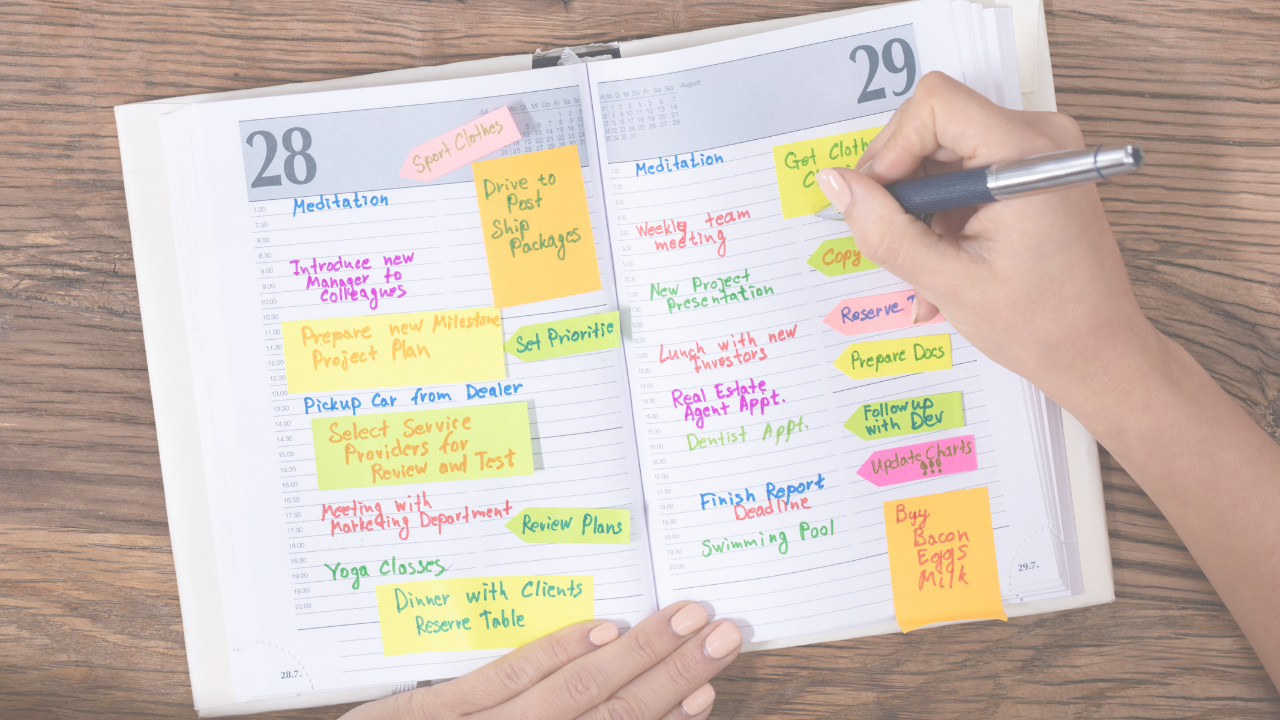 28
Sport Clothes
Meditation
Drive to
Post
Ship
Packages
Introduce new
Manager to
Colleagues
Prepare new Milestone
Project Plan
Set Prioritie
Pickup Car from Dealer
Select Service
Providers for
Review and Test
Meeting with
Marketing Department
Review Plans
Yoga Classes
Dinner with Clients
Reserve Table
28.7.
August
29
Meditation
Get Cloth
Weekly team
meeting
Copy
New Project
Presentation
Reserve T
Lunch with new
Investors
Prepare Docs
Real Estate
Agent Appt.
Follow up
with Dev
Dentist Appt.
Update Charts
!!!
Finish Report
Deadline
Swimming Pool
Buy
Bacon
Eggs
Milk
29.7.